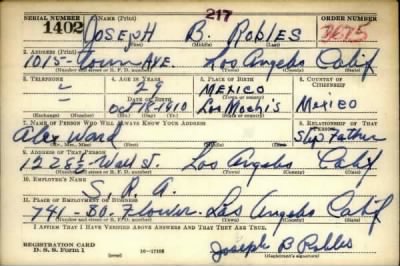 SERIAL NUMBER 1. NAME (Print) 217 ORDER NUMBER
1402 JOSEPH B. ROBLES 3675
(First) (Middle) (Last)
2. ADDRESS (Print)
1015- Town AVE. Los Angeles Calif
(Number and street or R. F. D. number) (Town) (County) (State)
3. TELEPHONE 4. AGE IN YEARS 5. PLACE OF BIRTH 6. COUNTRY OF CITIZENSHIP
29 MEXICO
DATE OF BIRTH
Oct 18-1910 Los Mochis Mexico
(Mo.) (Day) (Yr.) (State or country)
7. NAME OF PERSON WHO WILL ALWAYS KNOW YOUR ADDRESS 8. RELATIONSHIP OF THAT PERSON
Alex Ward Step Father
9. ADDRESS OF THAT PERSON
Wall St. Los Angeles Calif
(Number and street or R. F. D. number) (Town) (County) (State)
10. EMPLOYER'S NAME
S. R. A.
11. PLACE OF EMPLOYMENT OR BUSINESS
741- So. Flower. Los Angeles Calif
(Number and street or R. F. D. number) (Town) (County) (State)
I AFFIRM THAT I HAVE VERIFIED ABOVE ANSWERS AND THAT THEY ARE TRUE.
REGISTRATION CARD
D. S. S. Form 1 16-17105 Joseph B Robles